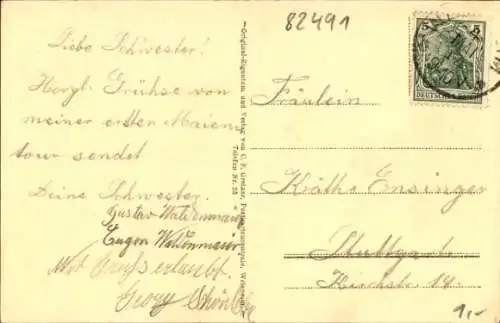 82491
Liebe Schwester!
Herzl. Grühse von
meiner ersten Maien
tour sendet
Deine Schwester.
Gustav Waldenmaier
Eugen Waldenmaier
Mit Gruss erlaubt
Georg
Original-Eigentum und Verlag von
Telefon Nr. 28
5 5
DEUTSCHES REICH
Fräulein
Käthe Ensinger
Stuttgart
Kirchstr. 14.
1,-